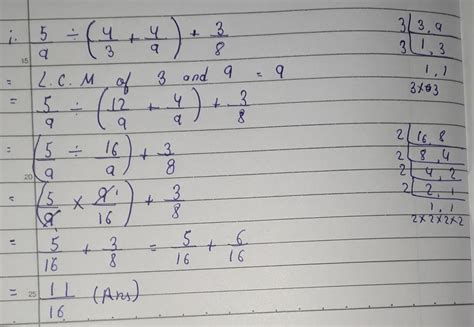 i. 5/9 ÷ (4/3 + 4/9) + 3/8
15
= L.C.M of 3 and 9 = 9
= 5/9 ÷ (12/9 + 4/9) + 3/8
= (5/9 ÷ 16/9) + 3/8
20
= (5/9 × 9¹/16) + 3/8
= 5/16 + 3/8 = 5/16 + 6/16
= 11/16 (Ans)
25
3 | 3, 9
3 | 1, 3
1, 1
3×3
2 | 16, 8
2 | 8, 4
2 | 4, 2
2 | 2, 1
1, 1
2×2×2×2